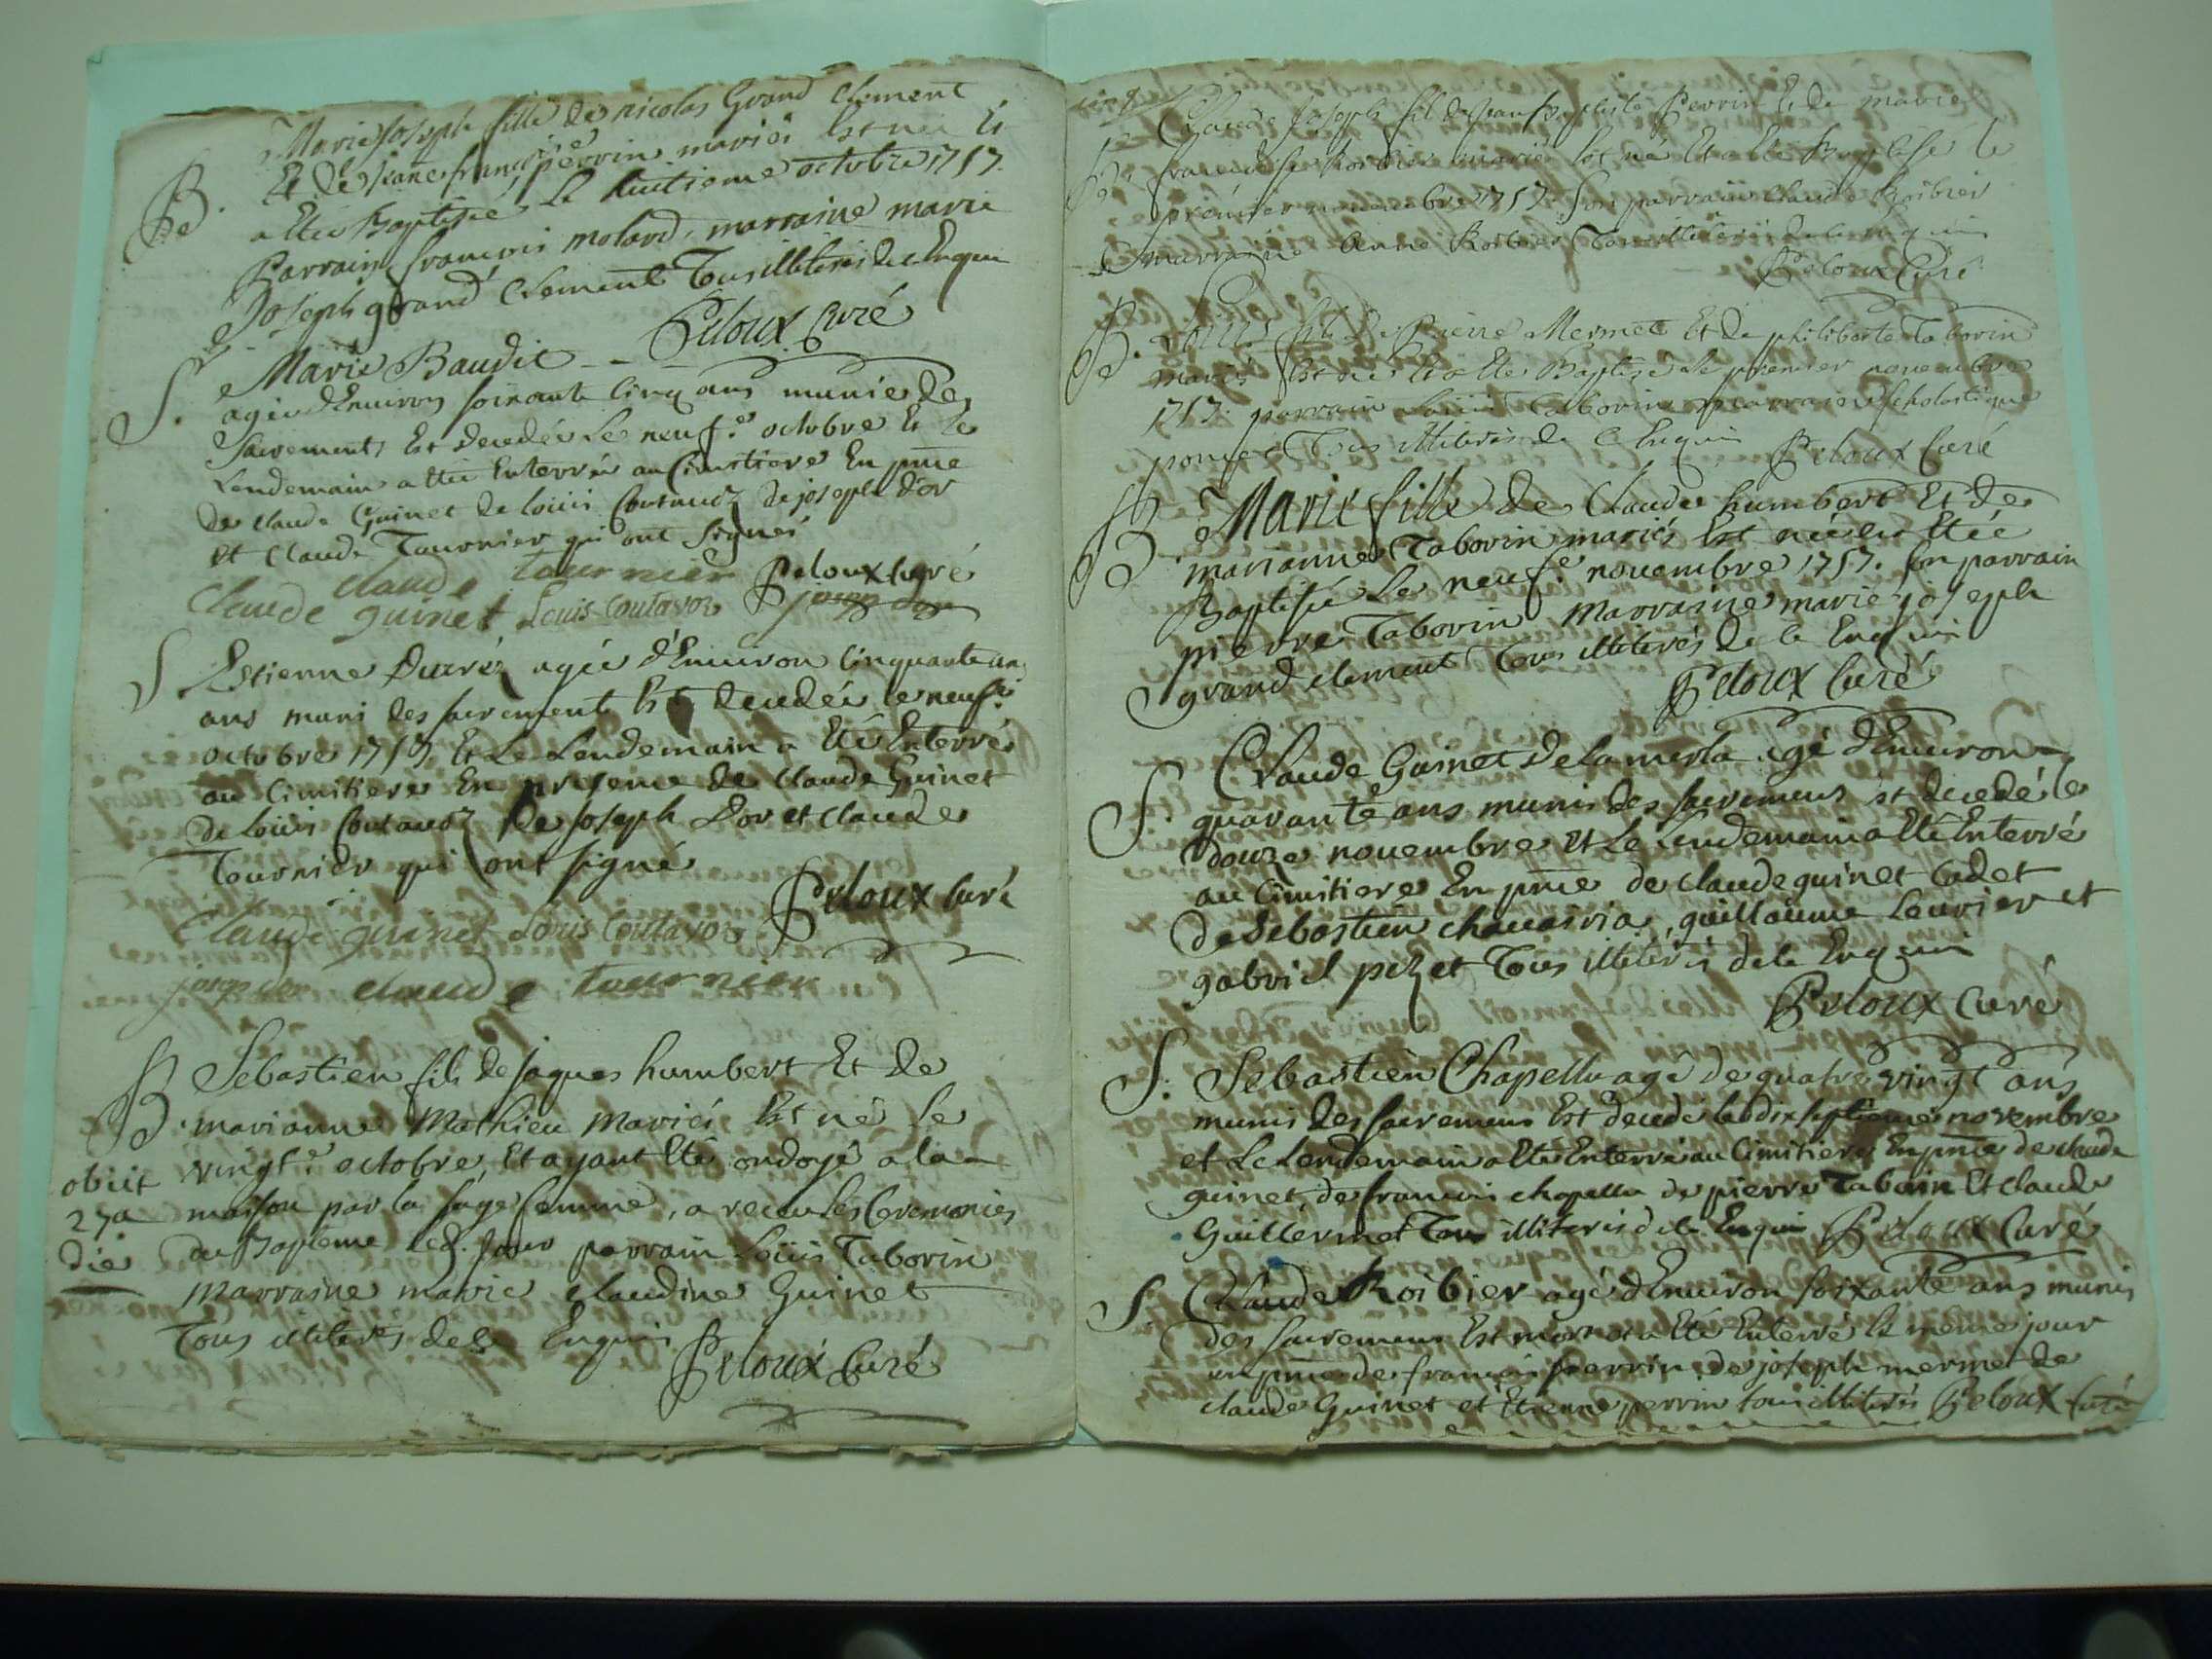 Marie Joseph fille de nicolas Grand Clement
B. Et de Jeane françoise perrin mariés Est née Et
a Etée Baptisée Le huitieme octobre 1757.
Parrain françois molard, marraine marie
Joseph grand Clement Tous illiterés de ce Enquis
Peloux Curé
S. Marie Baudit
agée d'Environ soixante cinq ans munie des
sacrements Est decedée Le neuf.e octobre Et Le
Lendemain a Etée Enterrée au Cimitiere En pnce
de claude Guinet de Loüis Coutauoz de joseph d'or
et claude Tournier qui ont signés
claude tournier Peloux curé
Claude guinet Louis Coutavoz josep dor
S Estienne Ducréz agée d'Environ Cinquante un
ans muni des sacrements Est decedée le neuf.e
octobre 1757 Et Le Lendemain a Eté Enterré
au Cimitiere En presence de claude Guinet
de Loüis Coutauoz De Joseph Dor et claude
Tournier qui ont signé
Peloux Curé
Claude guinet Louis Coutavoz
josep dor claude tournier
B. Sebastien fils de Jaques humbert Et de
marianne Mathieu Mariés Est né Le
obiit vingt.e octobre, Et ayant Eté ondoyé a la
27a maison par la sage femme, a receu les Ceremonies
die du Bapteme led. Jour parrain Loüis Taborin
Marraine marie claudine Guinet
Tous illiterés de ce Enquis
Peloux Curé
Claude Joseph fils de Jean Baptiste Perrin Et de marie
B. françoise Roibier mariés Est né Et a Eté Baptisé le
premier nouembre 1757. Son parrain claude Roibier
marraine Anne Roibier Tous illiterés de ce Enquis
Peloux Curé
B. Loüis fils de Pierre Mermet Et de philiberte Taborin
mariés Est né Et a Ete Baptisé Le premier nouembre
1757. parrain Loüis Taborin marraine scholastique
poncet Tous illiterés de ce Enquis Peloux Curé
B. Marie fille de Claude humbert Et de
marianne Taborin mariés Est née Et a Etée
Baptisée Le neuf.e nouembre 1757. Son parrain
pierre Taborin Marraine marie joseph
grand clement Tous illiterés de ce Enquis
Peloux Curé
S. Claude Guinet De La merla agé d'Enuiron
quarante ans munis des sacremens et decedé le
douze nouembre Et Le Lendemain a Eté Enterré
au Cimitiere En pnce de claude guinet Cadet
de Sebastien chauairia, guillaume Leurier et
gabriel pizet Tous illiterés de ce Enquis
Peloux Curé
S. Sebastien Chapellu agé de quatre vingt ans
munis des sacremens Est decedé le dix septieme novembre
et Le Lendemain a Ete Enterré au Cimitiere En pnce de claude
guinet, de francois chapellu de pierre Taborin Et claude
Guillermet Tous illiterés de ce Enquis Peloux Curé
S. Claude Roibier agé d'Enuiron soixante ans munis
des sacremens Est mort et a Eté Enterré le meme jour
en pnce de françois perrin, de joseph mermet de
claude Guinet et Etienne perrin tous illiterés Peloux Curé